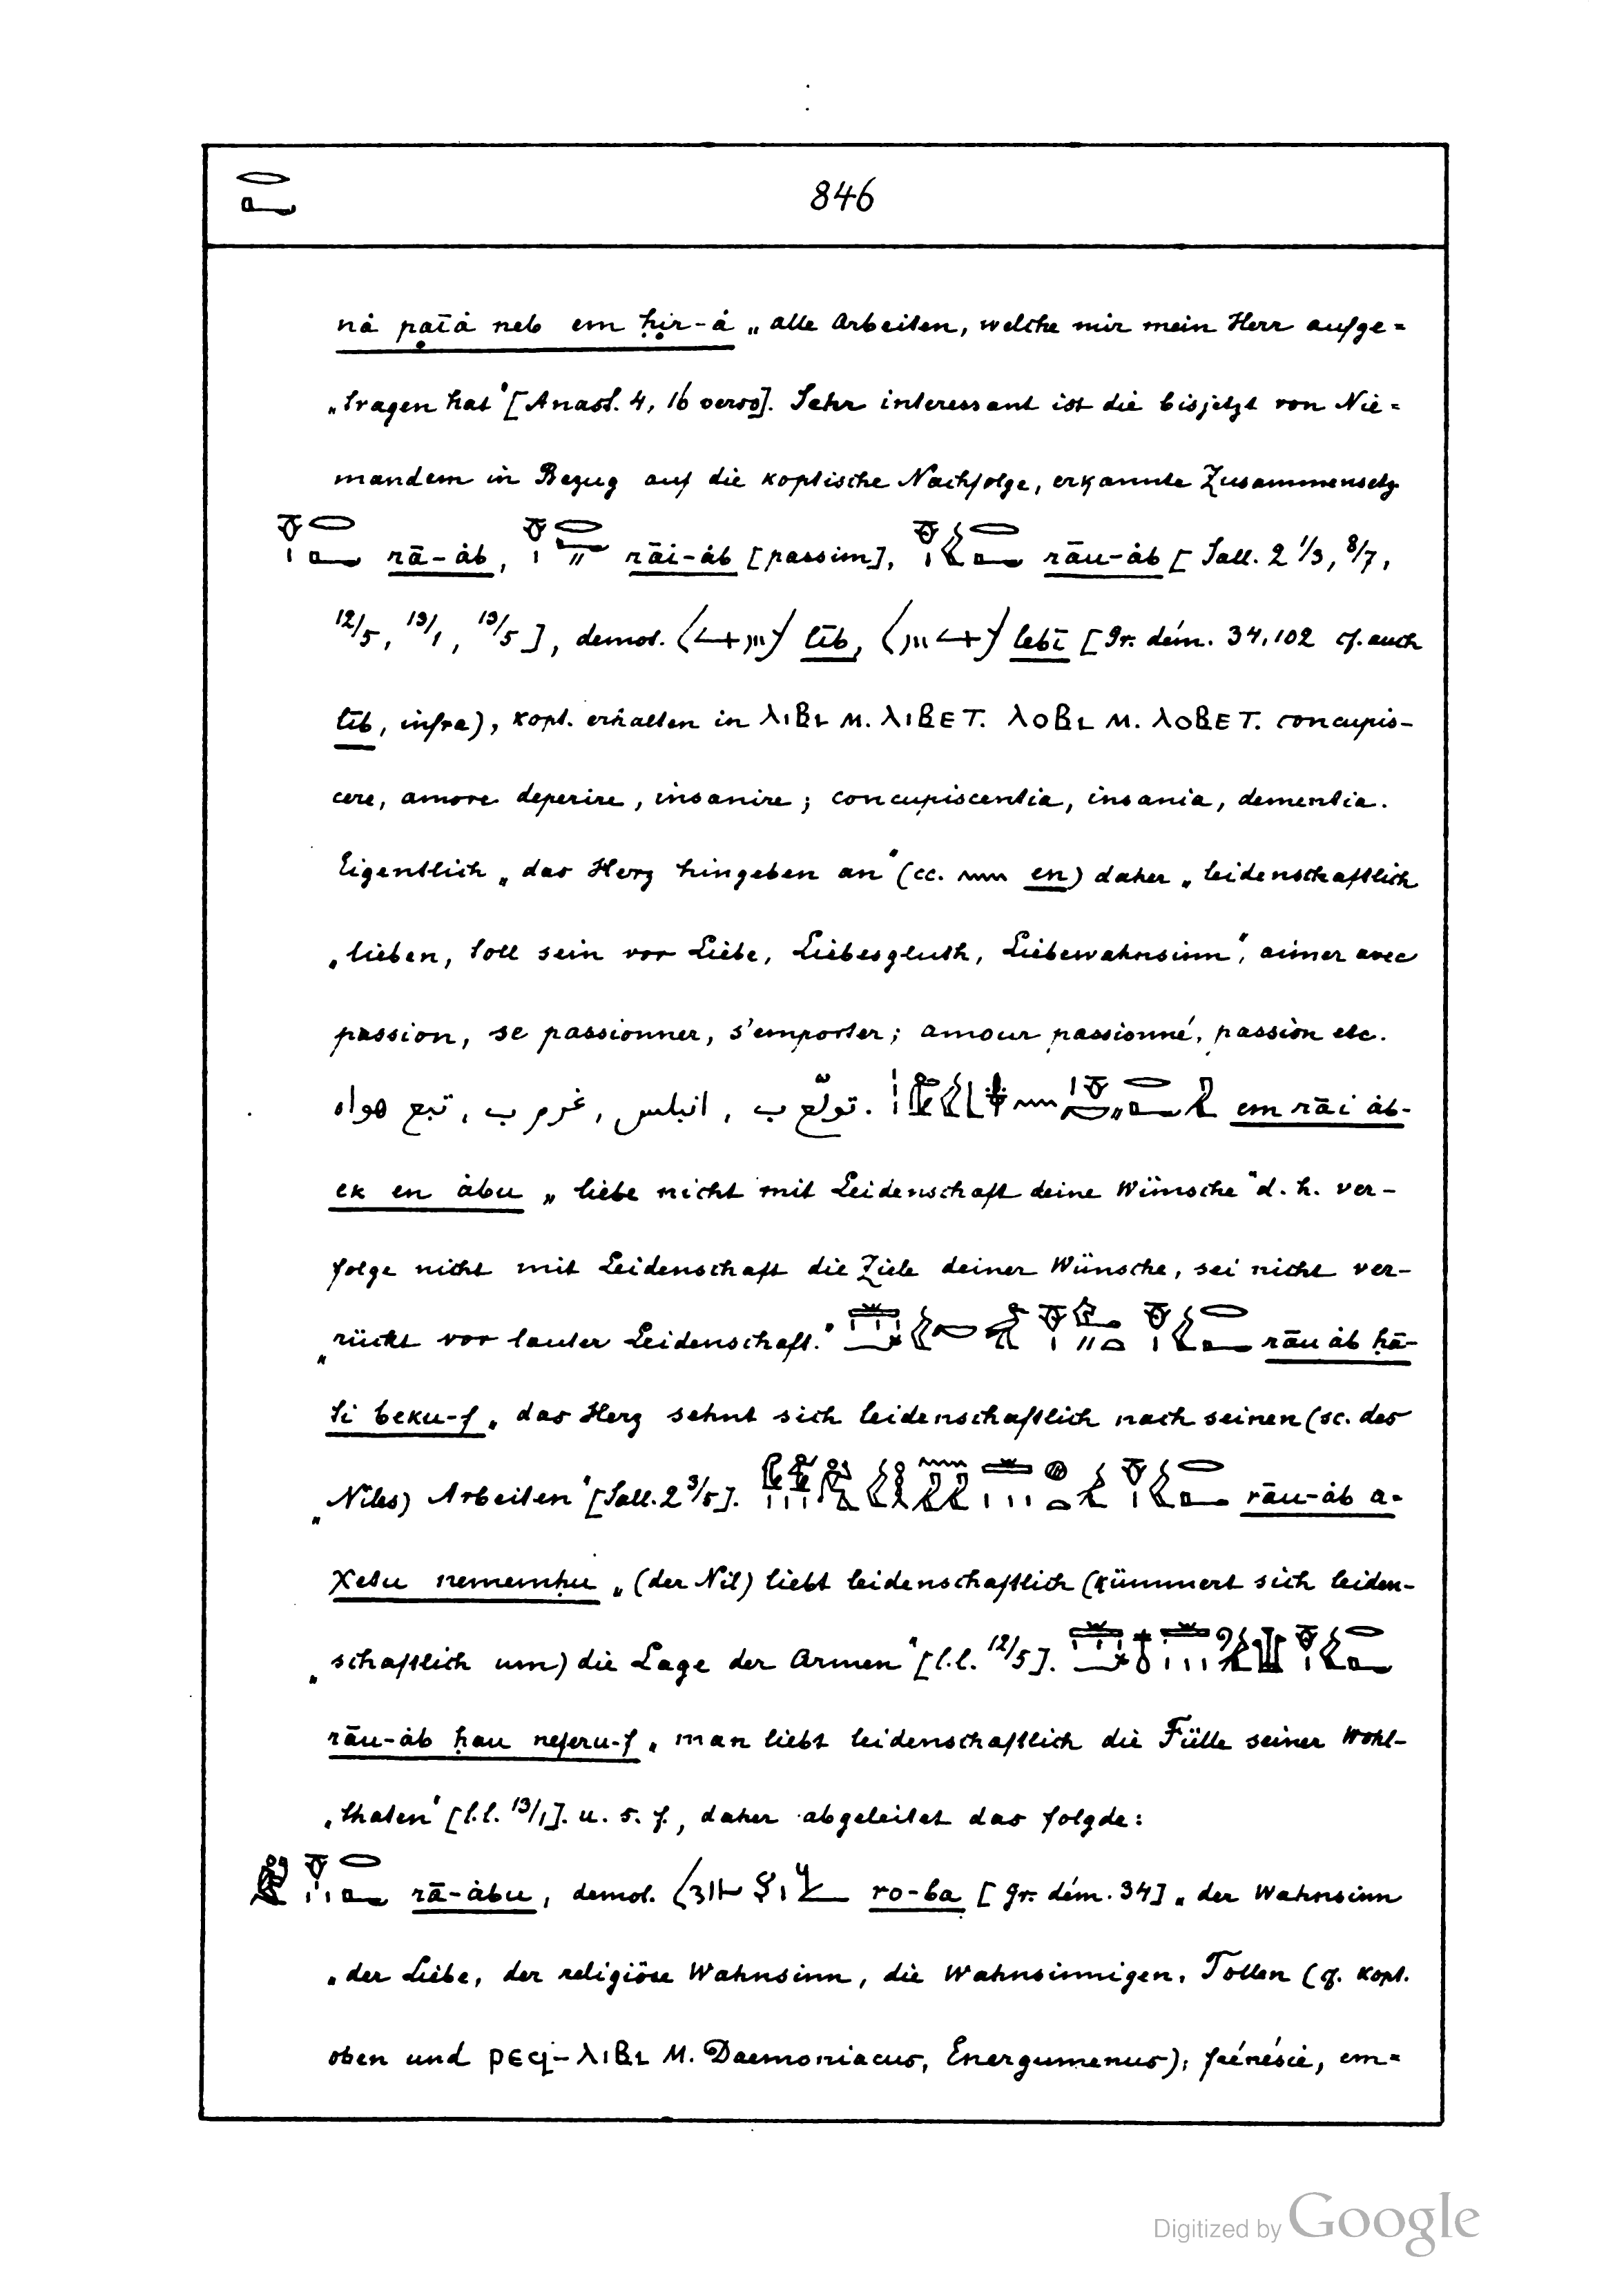 846
nȧ paīȧ neb em ḥir-ȧ „alle Arbeiten, welche mir mein Herr aufge=
„tragen hat" [Anast. 4, 16 verso]. Sehr interessant ist die bisjetzt von Nie=
mandem in Bezug auf die koptische Nachfolge, erkannte Zusammensetz
rā-ȧb, rāi-ȧb [passim], rāu-ȧb [Sall. 2 1/3, 8/7,
12/5, 13/1, 13/5], demot. līb, lebī [Gr. dém. 34, 102 cf. auch
līb, infra), kopt. erhalten in ⲗⲓⲃⲓ M. ⲗⲓⲃⲉ T. ⲗⲟⲃⲓ M. ⲗⲟⲃⲉ T. concupis-
cere, amore deperire, insanire; concupiscentia, insania, dementia.
Eigentlich „das Herz hingeben an" (cc. 𓈖 en) daher „leidenschaftlich
„lieben, toll sein vor Liebe, Liebesgluth, Liebewahnsinn", aimer avec
passion, se passionner, s'emporter; amour passionné, passion etc.
تولّع ب , انبلس , غرم ب , تبع هواه . em rāi ȧb-
ek en ȧbu „liebe nicht mit Leidenschaft deine Wünsche" d. h. ver-
folge nicht mit Leidenschaft die Ziele deiner Wünsche, sei nicht ver-
„rückt vor lauter Leidenschaft." rāu ȧb ḥā-
ti beku-f „das Herz sehnt sich leidenschaftlich nach seinen (sc. des
„Niles) Arbeiten" [Sall. 2 3/5]. rāu-ȧb a-
χetu nememḥu „(der Nil) liebt leidenschaftlich (kümmert sich leiden-
„schaftlich um) die Lage der Armen" [l.l. 12/5].
rāu-ȧb ḥau neferu-f „man liebt leidenschaftlich die Fülle seiner Wohl-
„thaten" [l.l. 13/1]. u. s. f., daher abgeleitet das folgde:
rā-ȧbu, demot. ro-ba [Gr. dém. 34] „der Wahnsinn
„der Liebe, der religiöse Wahnsinn, die Wahnsinnigen, Tollen (cf. kopt.
oben und ⲣⲉϥ-ⲗⲓⲃⲓ M. Daemoniacus, Energumenus); frénésie, em=
Digitized by Google